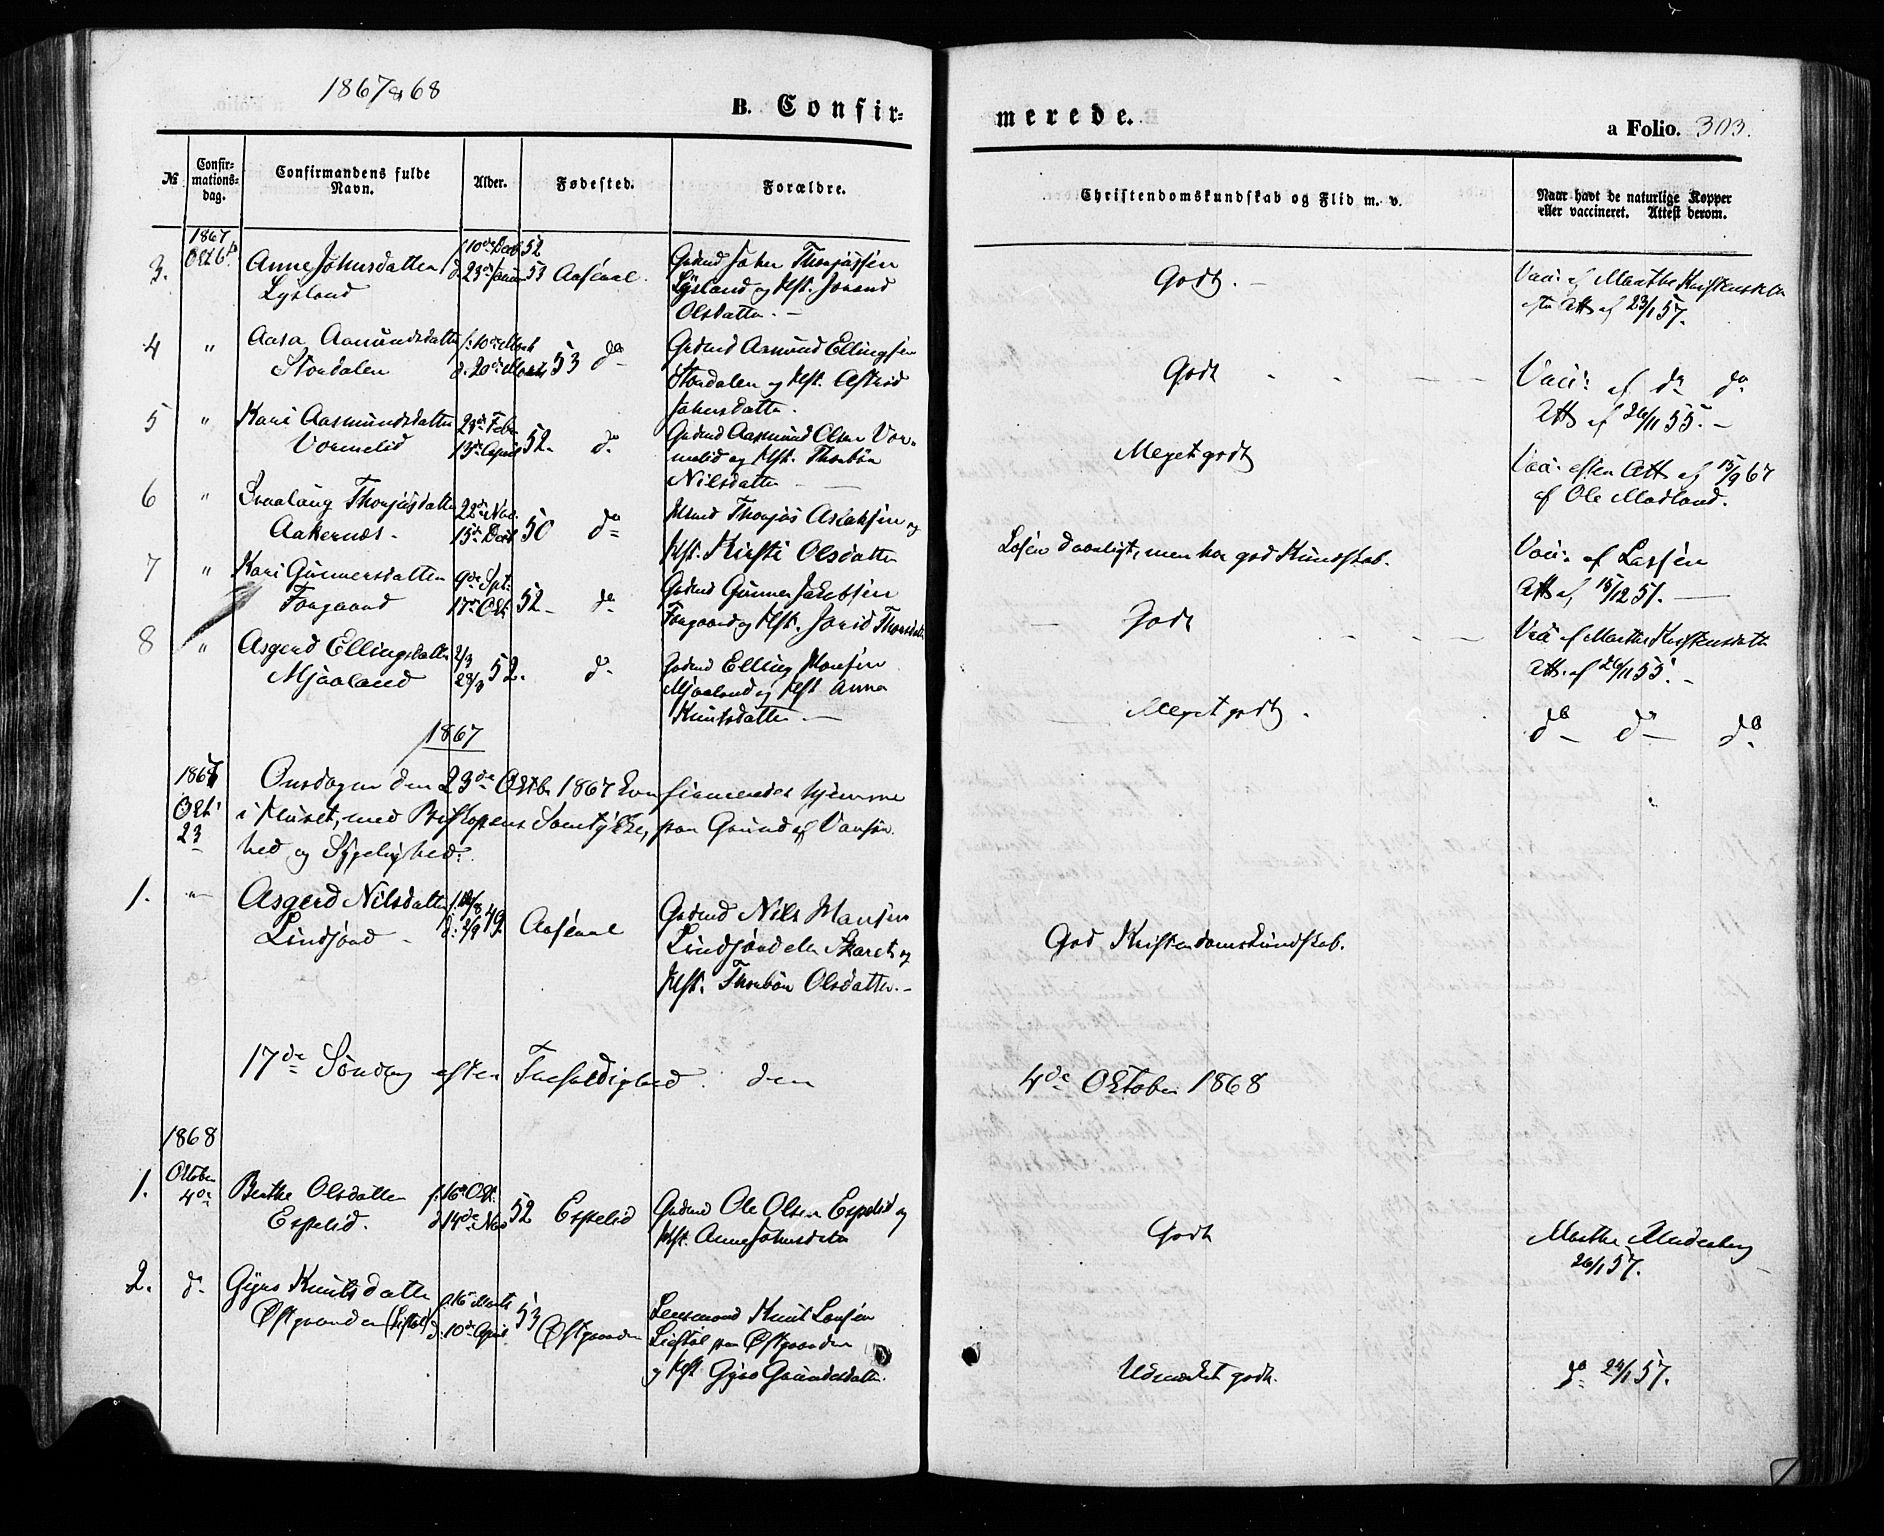 1867 & 68
B. Confir=
merede.
a Folio. 303.
№
Confir-
mations-
dag.
Confirmandens fulde
Navn.
Alder.
Fødested.
Forældre.
Christendomskundskab og Flid m. v.
Naar havt de naturlige Kopper
eller vaccineret. Attest derom.
1867
3. Oct 6 Anne Johnsdatter f 10de Decb 52
Lysland d. 23de Januar 53 Aaseral.
Gdmd John Thorjussen
Lysland og Hst. Jorand
Olsdatter. —
Godt. —
Vac: af Marthe Kristensdatter
efter Att. af 23/1 57.
4 " Aasa Asmundsdatter f: 10de Marts
Stordalen d. 20de Marts 53 do
Gdmd Asmund Ellingsen
Stordalen og Hst. Astrid
Johnsdatter.
Godt
Vac: af do do
Att. af 26/11 55. —
5 " Kari Aasmundsdatter 23de Febr
Vormelid 13de April 52. do
Gdmd Aasmund Olsen Vor=
melid og Hst. Thorbør
Nilsdatter —
Meget godt
Vac: efter Att. af 15/9 67
af Ole Madland.
6 " Svaalaug Thorjusdatter 22de Nov.
Aakernæs. 15de Decb 50 do
Hmd Thorjus Aslaksen og
Hst. Kirsti Olsdatter
Læser daarligt, men har god Kundskab.
Vac: af Lassen
Att af 15/12 51. —
7 " Kari Gunnersdatter 9de Spt:
Forgaard 17de Okt. 52 do
Gdmd Gunner Jakobsen
Forgaard og Hst. Jorid Thorsdatter
Godt
Vac: af Marthe Kristensdatter
Att. af 26/11 55. —
8 " Asgerd Ellingsdatter 2/3
Mjaaland 28/3 52. do
Gdmd Elling Monsen
Mjaaland og Hst Anna
Knutsdatter —
Meget godt.
do do do
1867
1867
Okt
23
Onsdagen den 23de Oktbr 1867 Confirmeredes hjemme
i Huset, med Biskopens Samtykke, paa Grund af Vanfør
hed og Sygelighed:
1. " Asgerd Nilsdatter
Lindjord 2/9 49. Aaseral
Gdmd Nils Hansen
Lindjord eller Skaret og
Hst. Thorbør Olsdatter. —
God Kristendomskundskab.
17de Søndag efter Trefoldighed. den
4de Oktober 1868
1868
Oktober
1. 4de Berthe Olsdatter f. 16de Okt.
Espelid. d. 14de Nov 52 Espelid
Gdmd Ole Olsen Espelid og
Hst. Anne Johnsdatter
Godt
Marthe Maderberg
26/1 57.
2. do Gyro Knutsdatter f. 16 Marts
Østgaarden (Ligtøl) d. 10de April 53 Østgaarden
Lensmand Knut Larsen
Ligtøl paa Østgaarden
og Hst Gyro Gundersdatter.
Udmærket godt.
do 24/1 57.